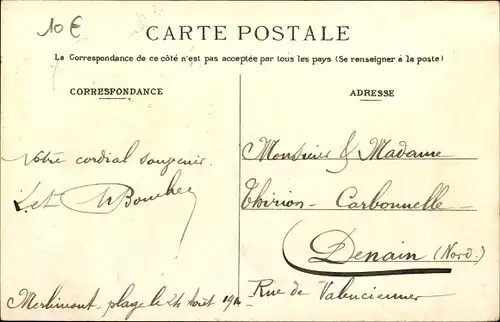 10 €
CARTE POSTALE
La Correspondance de ce côté n'est pas acceptée par tous les pays (Se renseigner à la poste)
CORRESPONDANCE
ADRESSE
Votre cordial souvenir.
Monsieur & Madame
Thirion - Carbonnelle
Denain (Nord.)
Rue de Valenciennes
Merlimont, plage le 24 Août